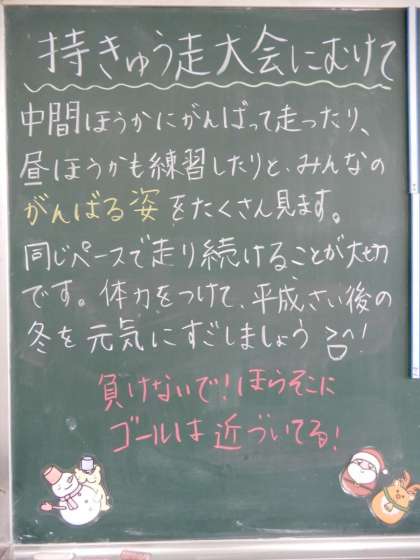 持きゅう走大会にむけて
中間ほうかにがんばって走ったり、
昼ほうかも練習したりと、みんなの
がんばる姿をたくさん見ます。
同じペースで走り続けることが大切
です。体力をつけて、平成さい後の
冬を元気にすごしましょう^o^!
負けないで!ほらそこに
ゴールは近づいてる!